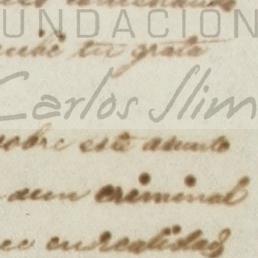 FUNDACIÓN
recibí tu grata
Carlos Slim
sobre este asunto
aun criminal
en realidad